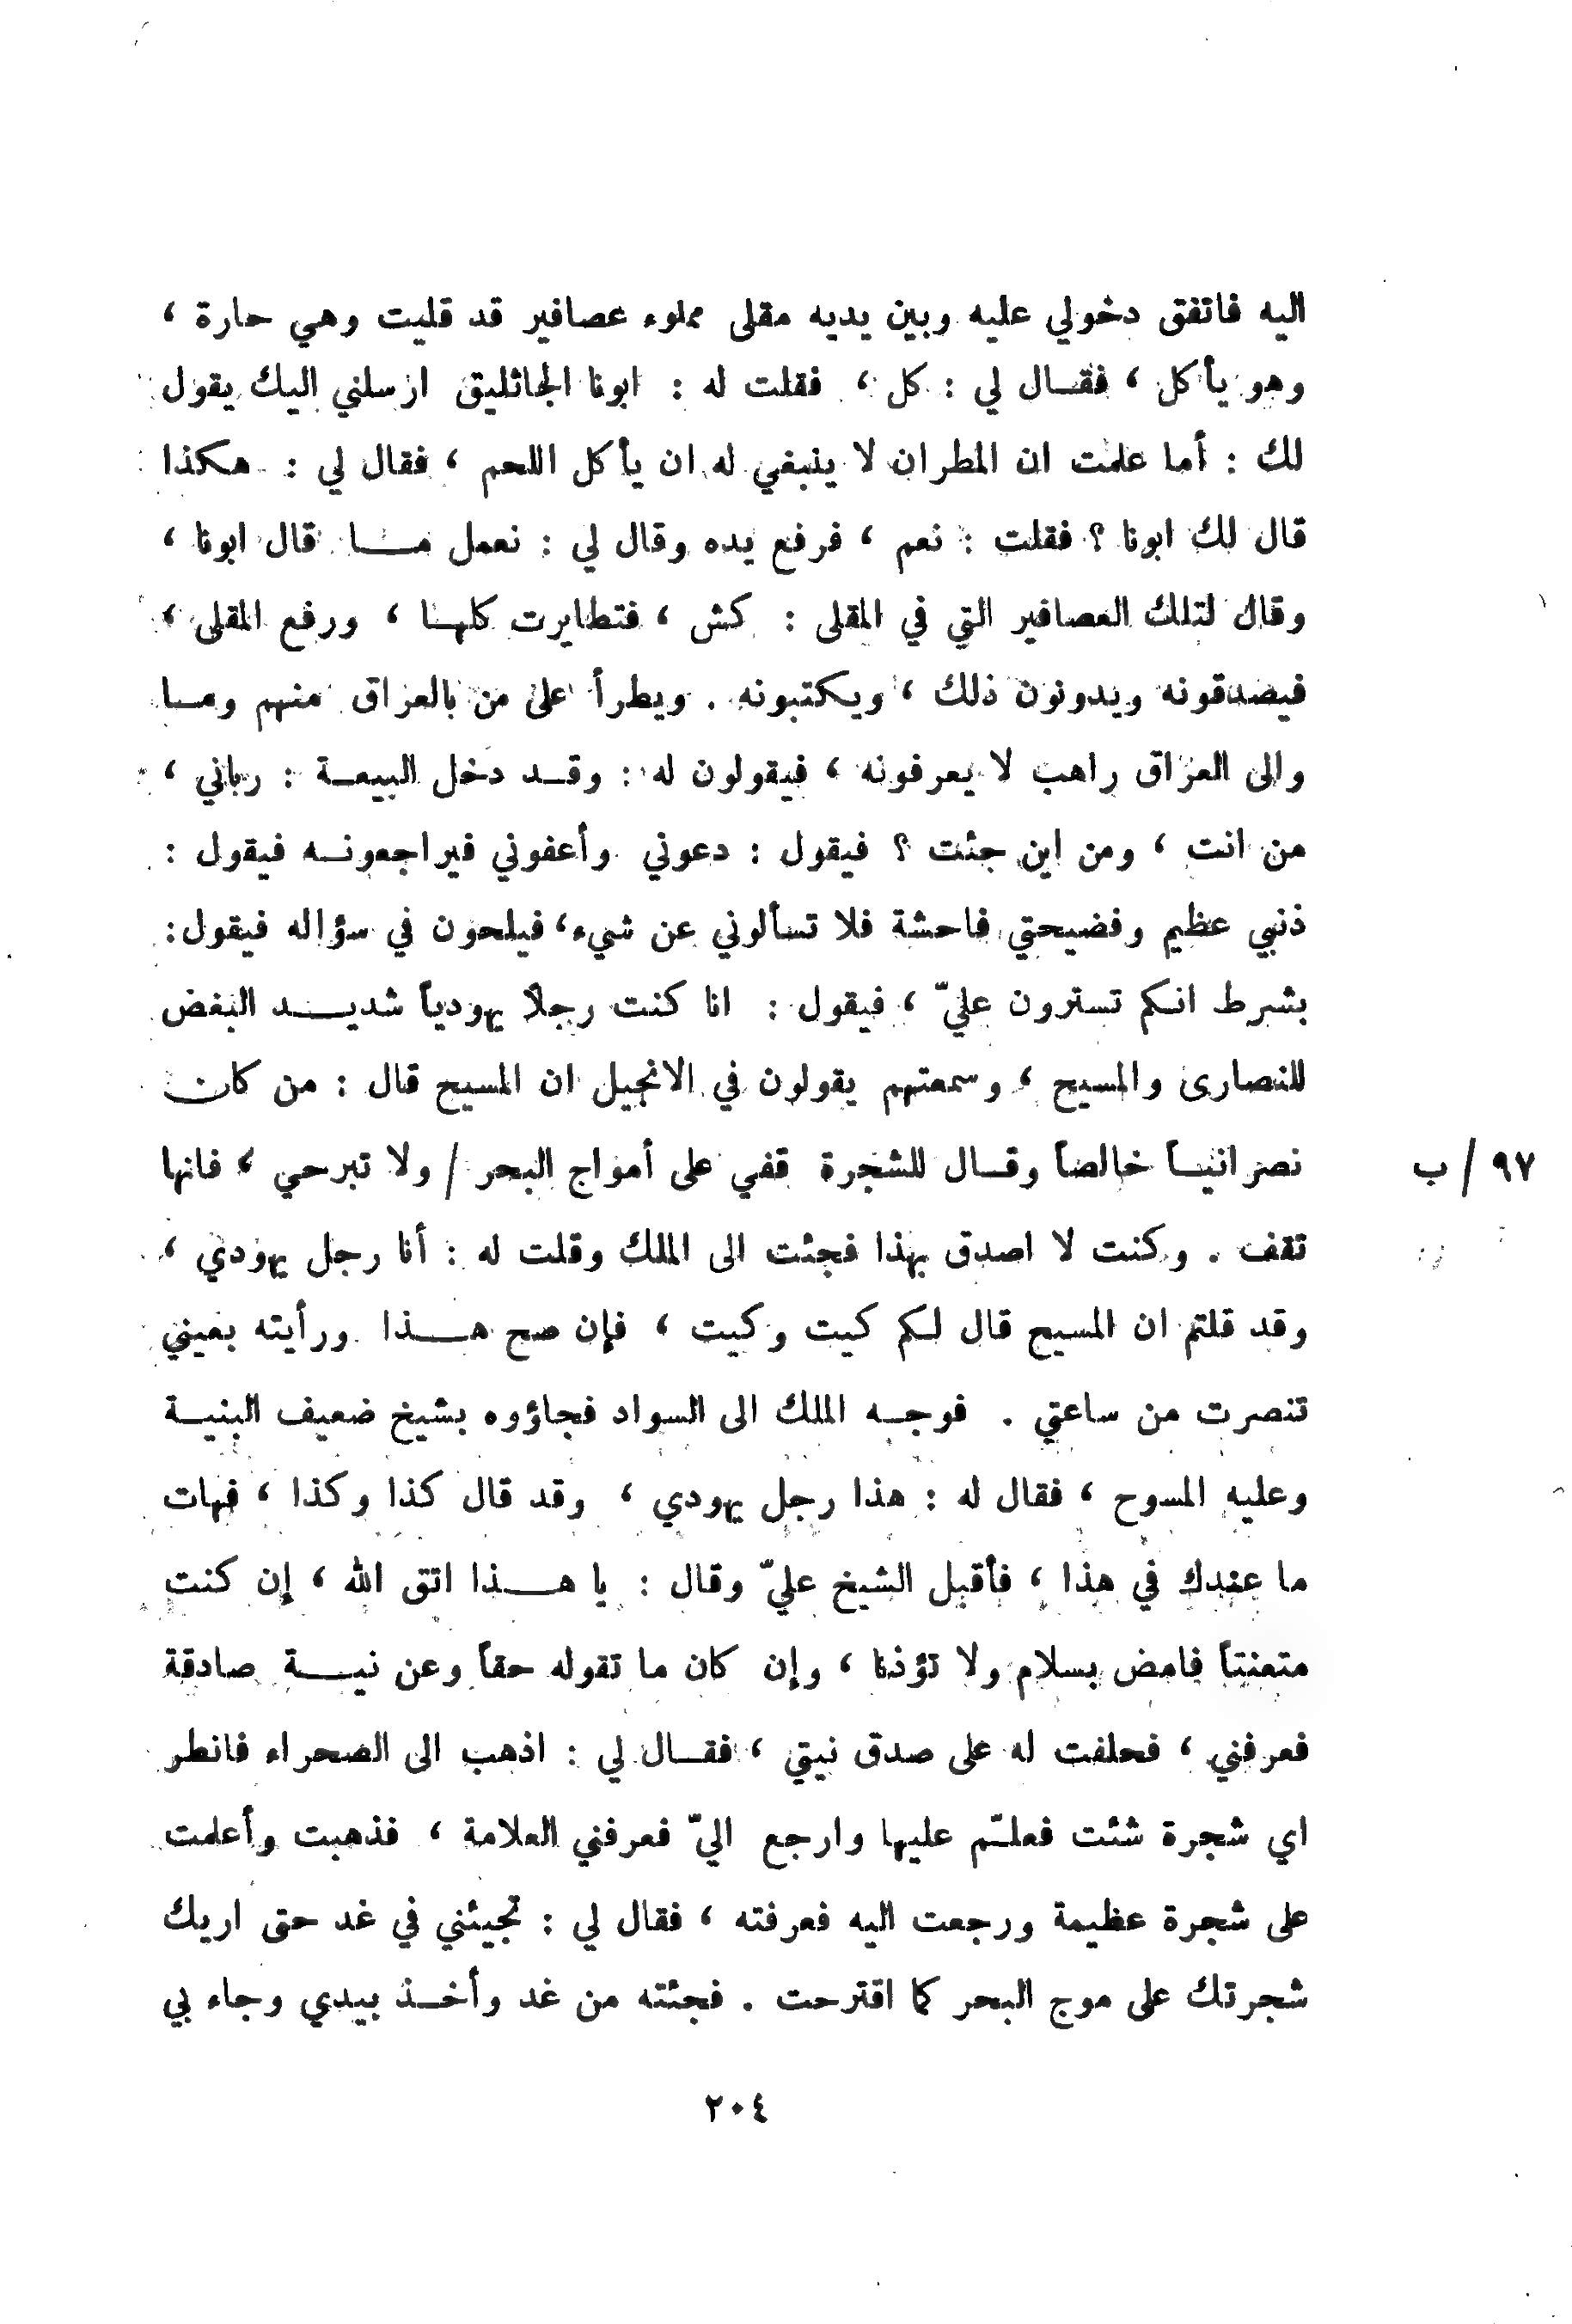 اليه فاتفق دخولي عليه وبين يديه مقلى مملوء عصافير قد قليت وهي حارة ،
وهو يأكل ، فقال لي : كل ، فقلت له : ابونا الجاثليق ارسلني اليك يقول
لك : أما علمت ان المطران لا ينبغي له ان يأكل اللحم ، فقال لي : هكذا
قال لك ابونا ؟ فقلت : نعم ، فرفع يده وقال لي : نعمل ما قال ابونا ،
وقال لتلك العصافير التي في المقلى : كش ، فتطايرت كلها ، ورفع المقلى ،
فيصدقونه ويدونون ذلك ، ويكتبونه . ويطرأ على من بالعراق منهم وما
والى العراق راهب لا يعرفونه ، فيقولون له : وقد دخل البيعة : رباني ،
من انت ، ومن اين جئت ؟ فيقول : دعوني وأعفوني فيراجعونه فيقول :
ذنبي عظيم وفضيحتي فاحشة فلا تسألوني عن شيء ، فيلحون في سؤاله فيقول :
بشرط انكم تسترون عليّ ، فيقول : انا كنت رجلاً يهودياً شديد البغض
للنصارى والمسيح ، وسمعتهم يقولون في الانجيل ان المسيح قال : من كان
نصرانياً خالصاً وقال للشجرة قفي على أمواج البحر / ولا تبرحي ، فانها
٩٧ / ب
تقف . وكنت لا اصدق بهذا فجئت الى الملك وقلت له : أنا رجل يهودي ،
وقد قلتم ان المسيح قال لكم كيت وكيت ، فإن صح هذا ورأيته بعيني
تنصرت من ساعتي . فوجه الملك الى السواد فجاؤوه بشيخ ضعيف البنية
وعليه المسوح ، فقال له : هذا رجل يهودي ، وقد قال كذا وكذا ، فهات
ما عندك في هذا ، فأقبل الشيخ عليّ وقال : يا هذا اتق الله ، إن كنت
متعنتاً فامض بسلام ولا تؤذنا ، وإن كان ما تقوله حقاً وعن نية صادقة
فعرفني ، فحلفت له على صدق نيتي ، فقال لي : اذهب الى الصحراء فانطر
اي شجرة شئت فعلّم عليها وارجع اليّ فعرفني العلامة ، فذهبت وأعلمت
على شجرة عظيمة ورجعت اليه فعرفته ، فقال لي : تجيئني في غد حتى اريك
شجرتك على موج البحر كما اقترحت . فجئته من غد وأخذ بيدي وجاء بي
٢٠٤